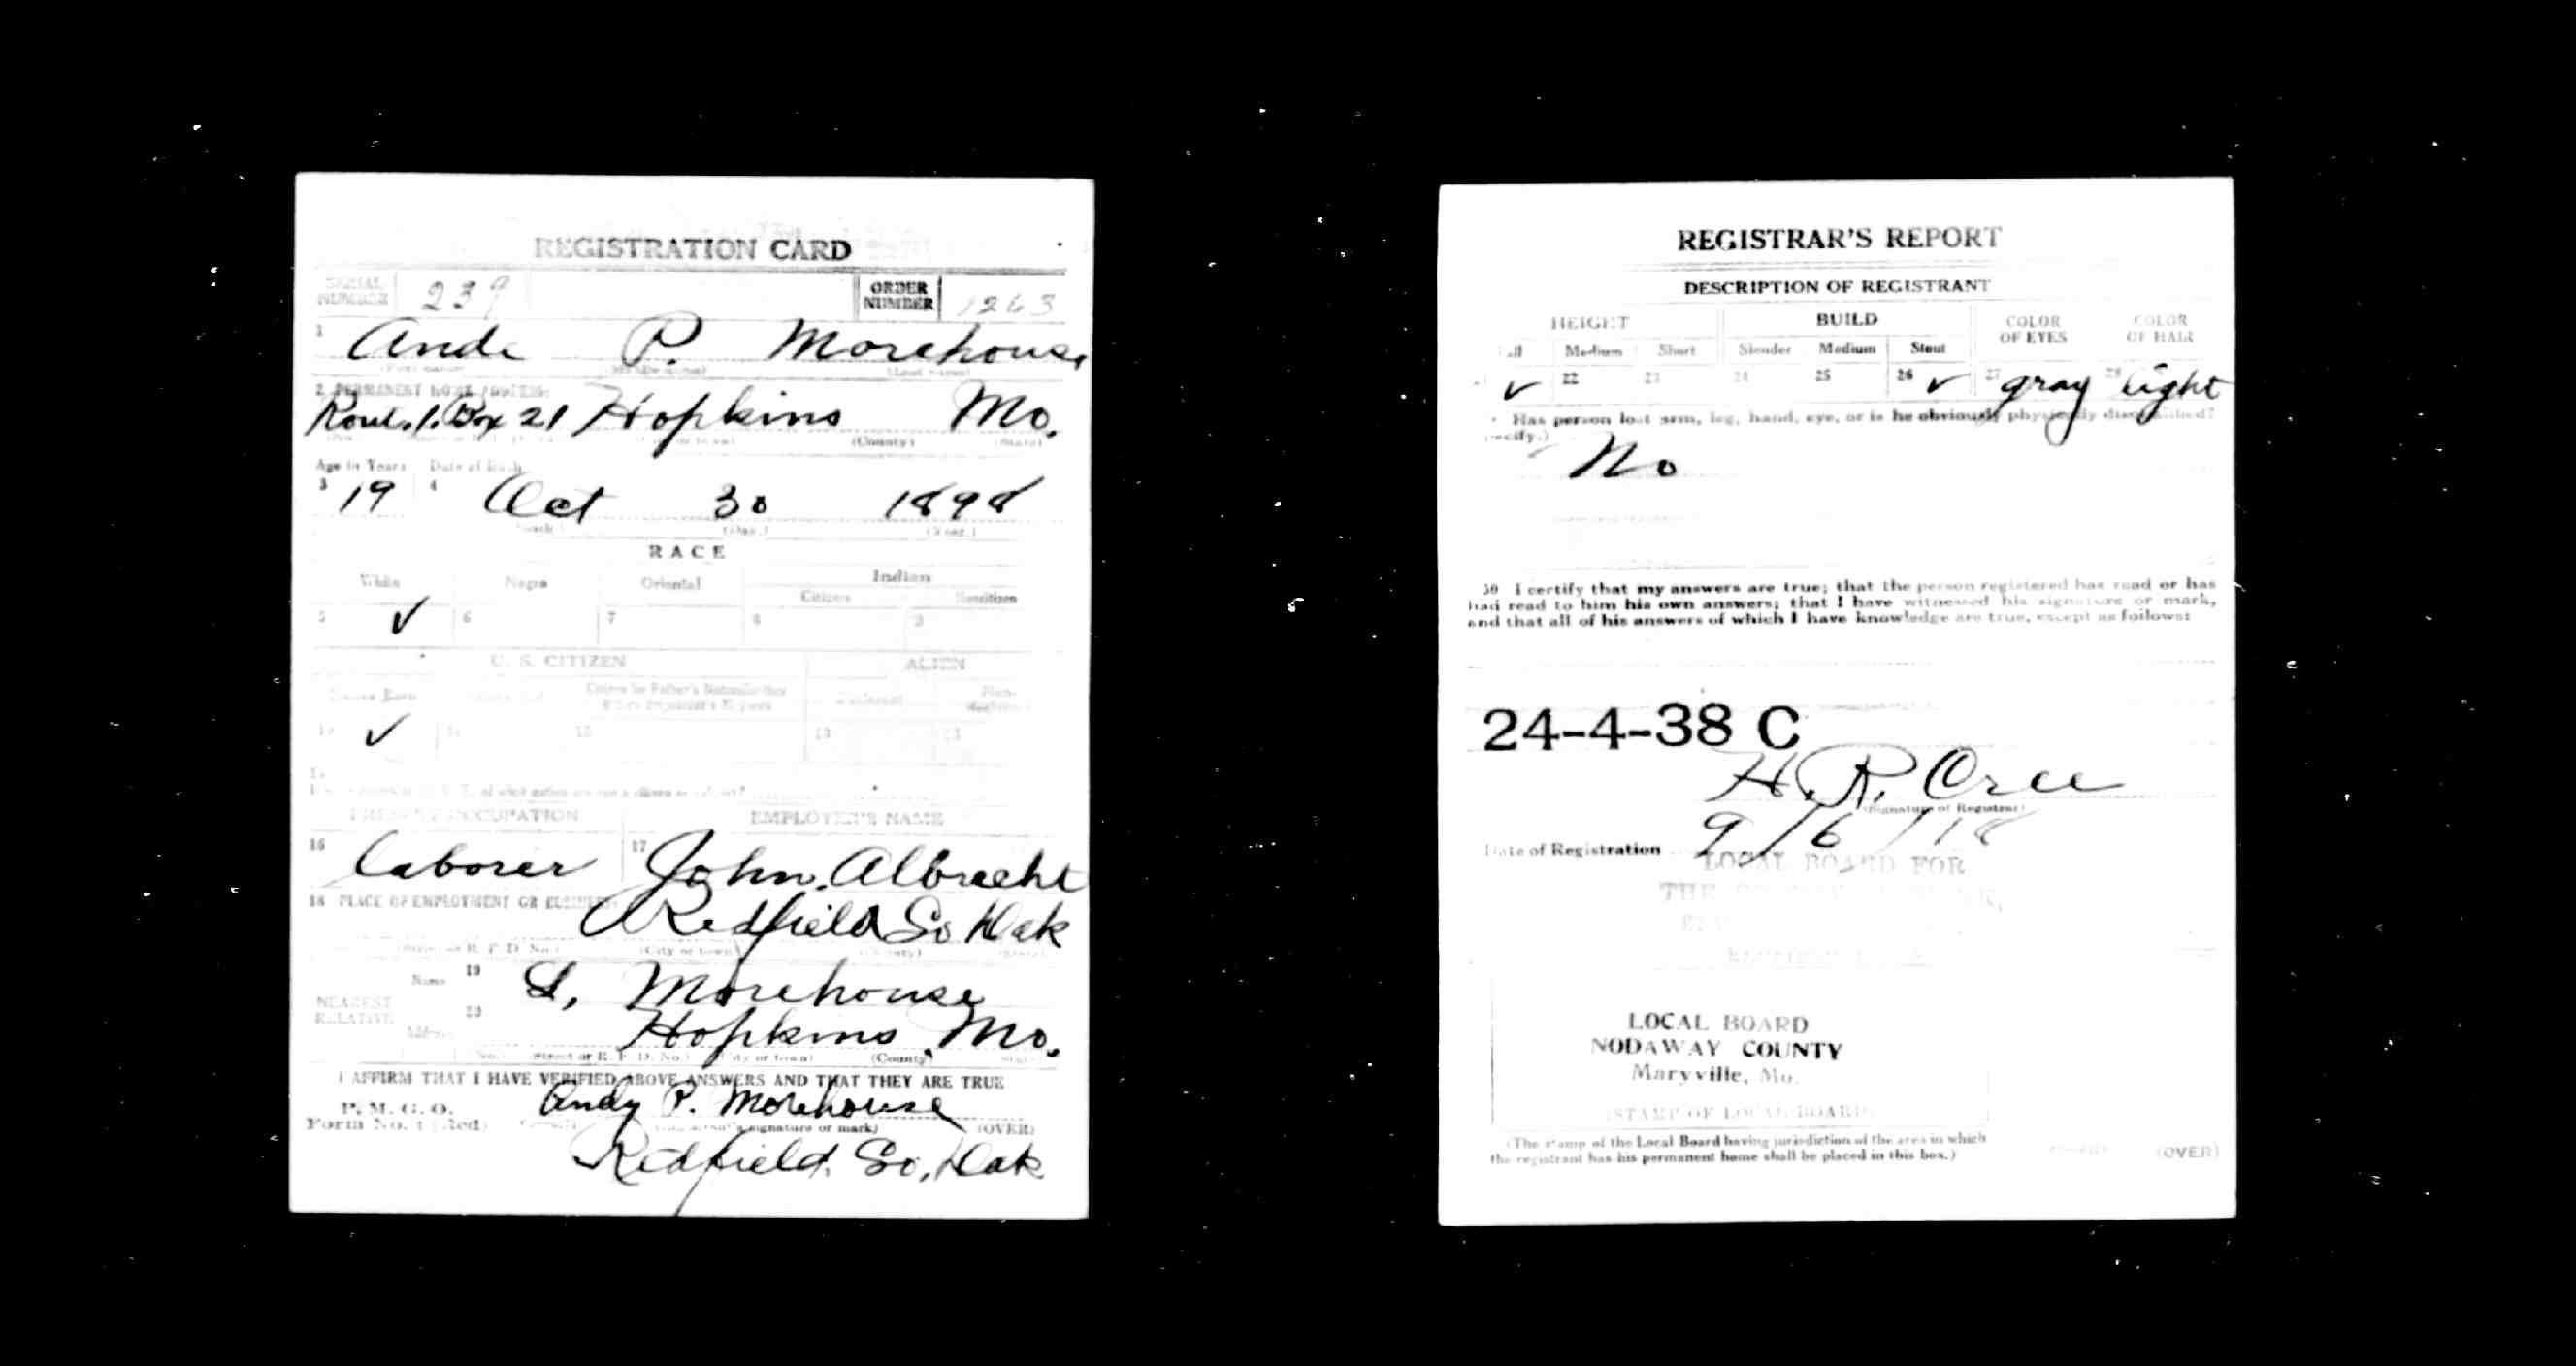 REGISTRATION CARD
SERIAL NUMBER 239 ORDER NUMBER 1263
1 Ande P. Morehouse
(Last name)
2 PERMANENT HOME ADDRESS:
Route 1. Box 21 Hopkins Mo.
(County) (State)
Age in Years Date of Birth
3 19 4 Oct 30 1898
(Day.) (Year.)
RACE
White Negro Oriental Indian
Citizen Noncitizen
5 ✓ 6 7 8 9
U. S. CITIZEN ALIEN
Native Born
✓ 12 13
PRESENT OCCUPATION EMPLOYER'S NAME
16 Laborer 17 John. Albrecht
18 PLACE OF EMPLOYMENT OR BUSINESS
Redfield So Dak
(Street or R. F. D. No.) (City or town) (County)
Name 19 S. Morehouse
NEAREST RELATIVE
Address 20 Hopkins, Mo.
(No.) (Street or R. F. D. No.) (City or town) (County) (State)
I AFFIRM THAT I HAVE VERIFIED ABOVE ANSWERS AND THAT THEY ARE TRUE
P. M. G. O.
Form No. 1 (Red)
Andy P. Morehouse
signature or mark) (OVER)
Redfield. So, Dak
REGISTRAR'S REPORT
DESCRIPTION OF REGISTRANT
HEIGHT BUILD COLOR OF EYES COLOR OF HAIR
Medium Short Slender Medium Stout
✓ 22 23 24 25 26 ✓ 27 gray 28 light
Has person lost arm, leg, hand, eye, or is he obviously physically disqualified?
No
30 I certify that my answers are true; that the person registered has read or has
had read to him his own answers; that I have witnessed his signature or mark,
and that all of his answers of which I have knowledge are true, except as follows:
24-4-38 C
H. R. Cree
(Signature of Registrar)
Date of Registration 9/6/18
LOCAL BOARD FOR
THE
LOCAL BOARD
NODAWAY COUNTY
Maryville, Mo.
(STAMP OF LOCAL BOARD)
(The stamp of the Local Board having jurisdiction of the area in which
the registrant has his permanent home shall be placed in this box.)
(OVER)